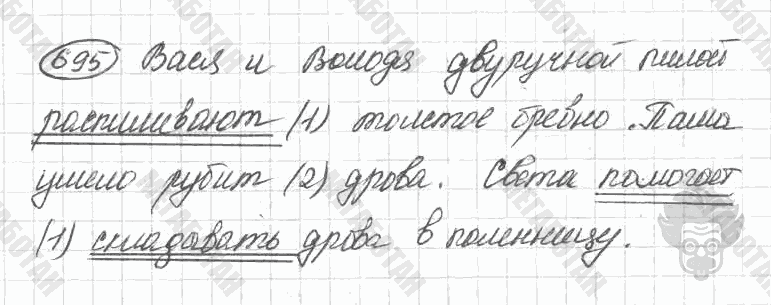 695 Вася и Володя двуручной пилой
распиливают (1) толстое бревно. Паша
умело рубит (2) дрова. Света помогает
(1) складывать дрова в поленницу.
НЕ БОТАН